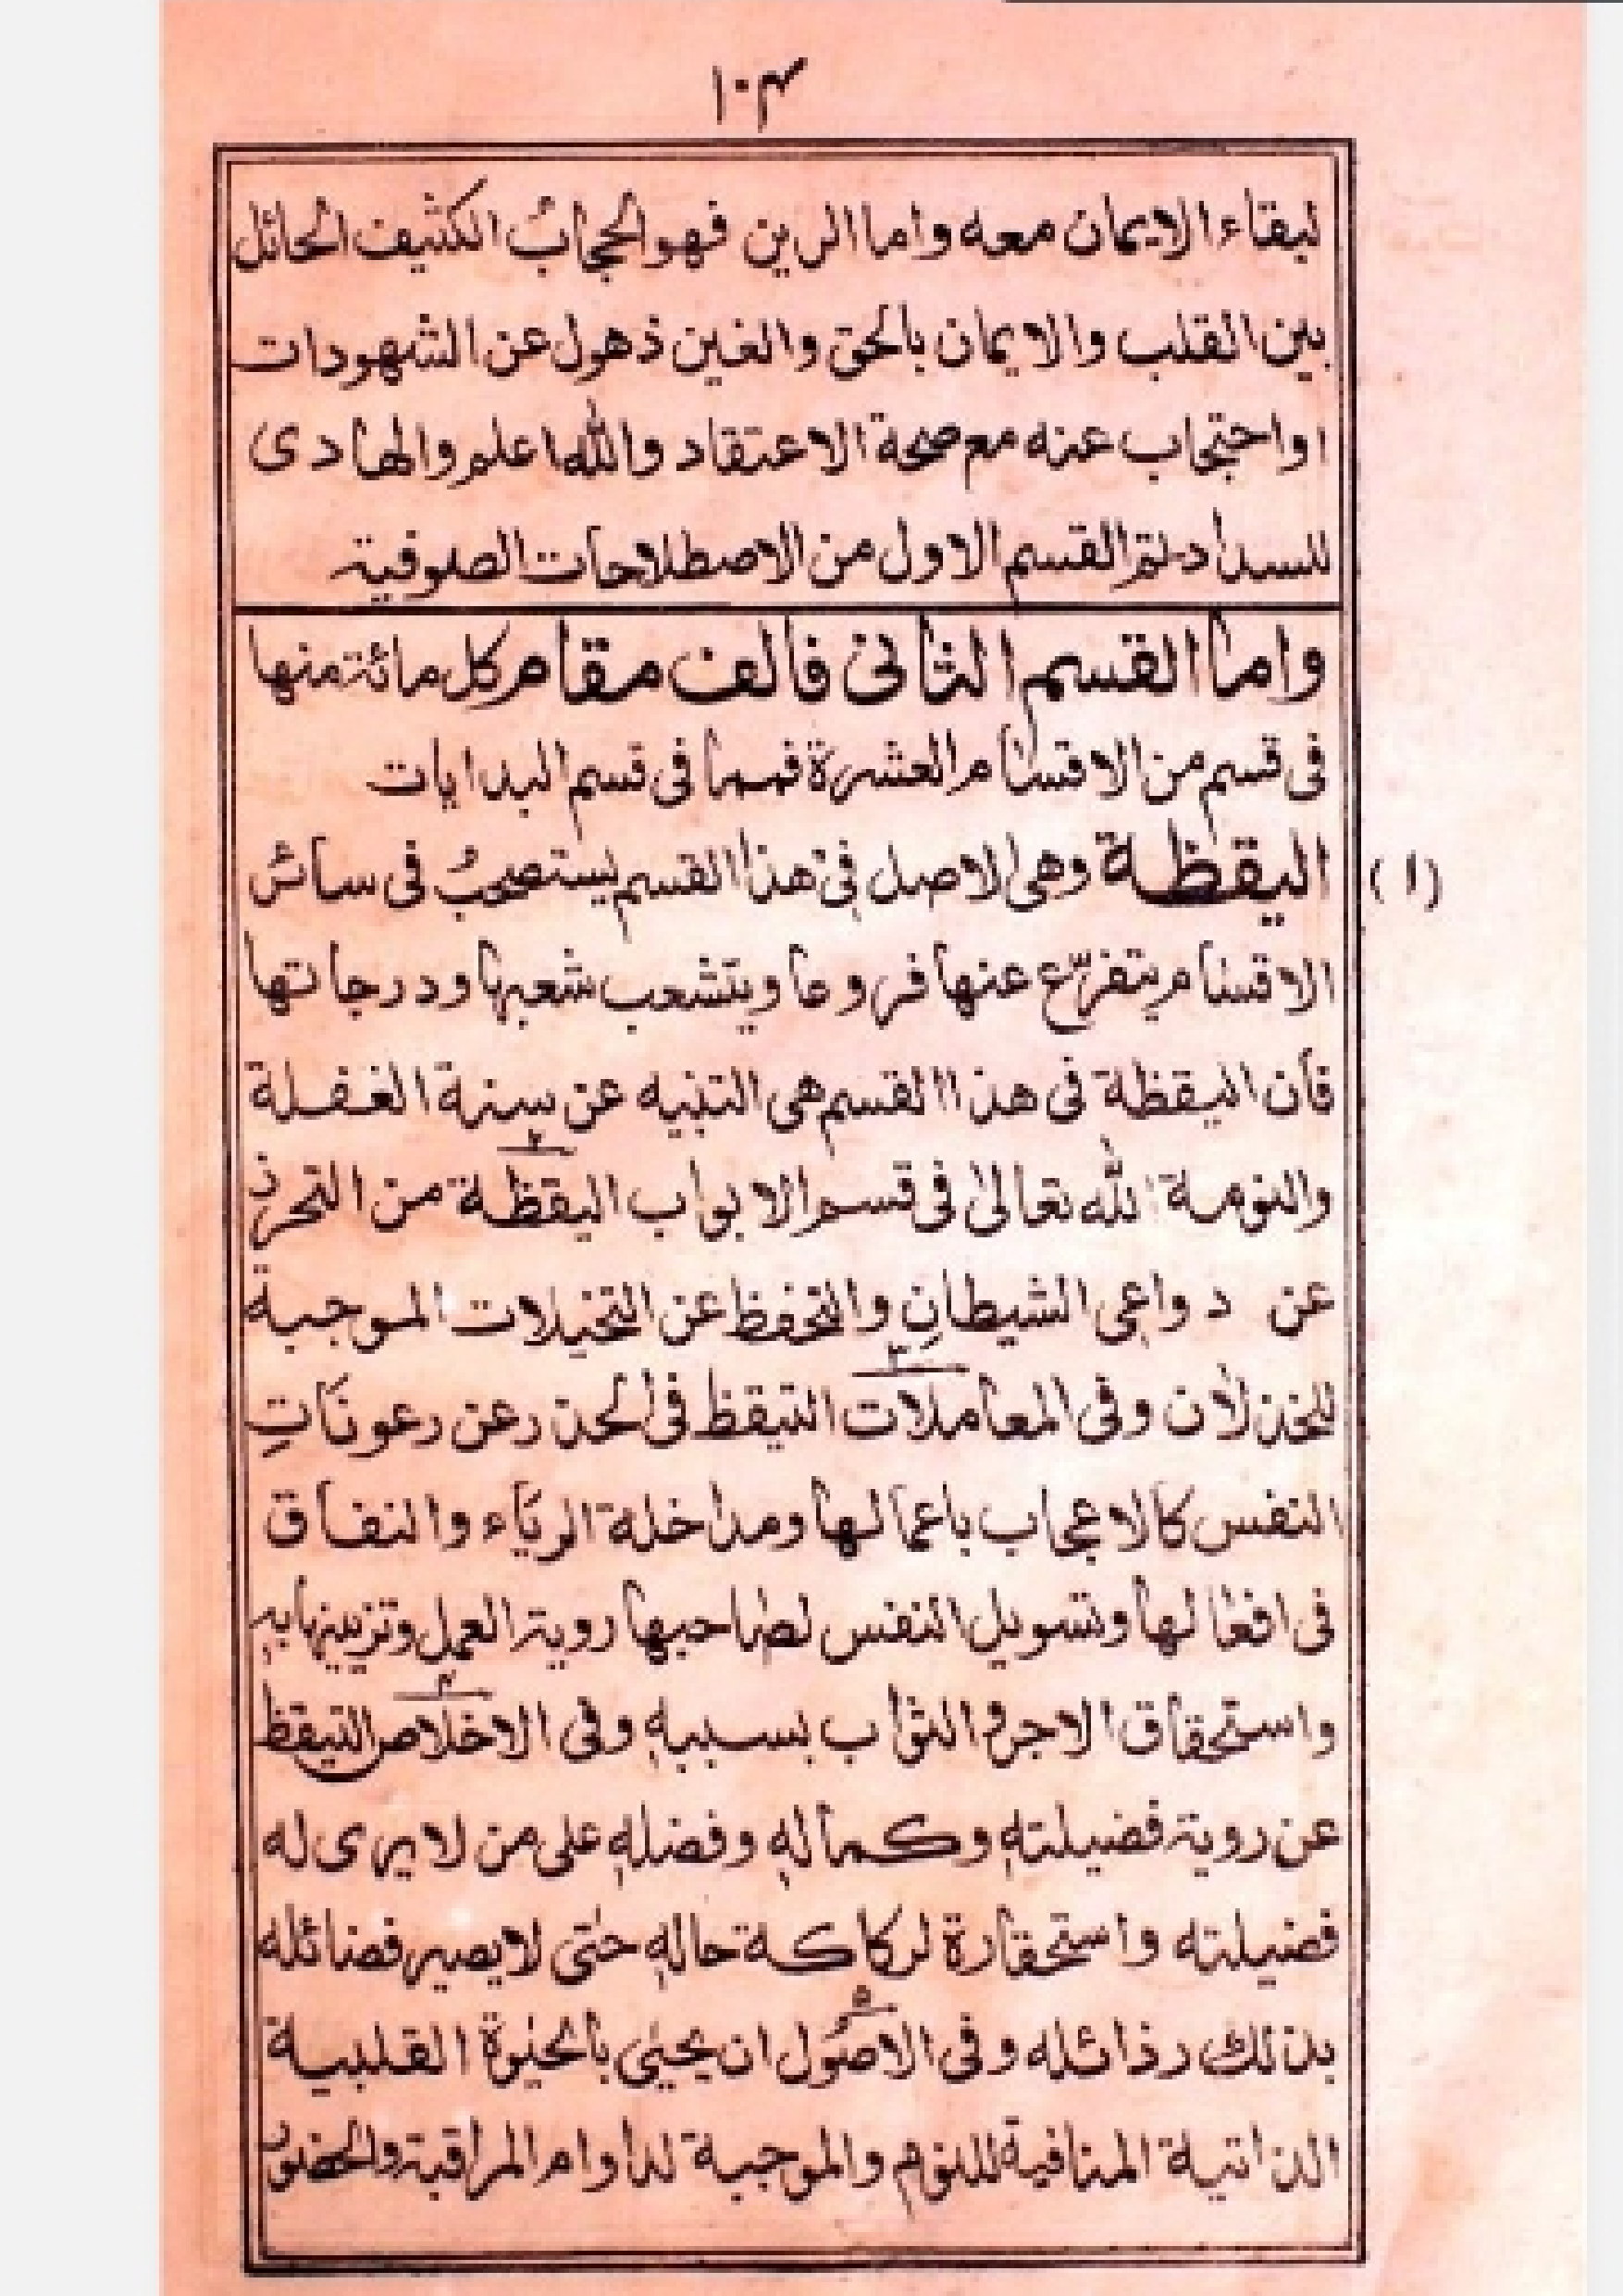 ١٠٣
لبقاء الايمان معه واما الرين فهو الحجابُ الكثيف الحائل
بين القلب والايمان بالحق والغين ذهول عن الشهودات
او احتجاب عنه مع صحة الاعتقاد والله اعلم والهادى
للسداد تم القسم الاول من الاصطلاحات الصوفية
واما القسم الثانى فالف مقام كل مائة منها
فى قسم من الاقسام العشرة فمما فى قسم البدايات
(١) اليقظة وهى الاصل فى هذا القسم يستصحبُ فى سائر
الاقسام يتفرّع عنها فروعا ويتشعب شعبها ودرجاتها
فان اليقظة فى هذا القسم هى التنبيه عن سنة الغفلة
والنومة لله تعالىٰ فى قسم الابواب ٢ اليقظة من التحرز
عن دواعى الشيطانِ والتحفظ عن التخيلات الموجبة
للخذلان وفى المعاملات ٣ التيقظ فى الحذر عن رعونَاتِ
النفس كالاعجاب باعمالها ومداخلة الريَاء والنفاق
فى افعالها وتسويل النفس لصاحبها روية العمل وتزيينها به
واستحقاق الاجر والثواب بسببهٖ وفى الاخلاص ٤ التيقظ
عن روية فضيلتهٖ وكمالهٖ وفضلهٖ على من لا يرى له
فضيلته واستحقارة لركاكة حالهٖ حتى لا يصير فضائله
بذلك رذائله وفى الاصول ٥ ان يحيىٰ بالحيٰوة القلبية
الذاتية المنافية للنوم والموجبة لداوام المراقبة والحضور